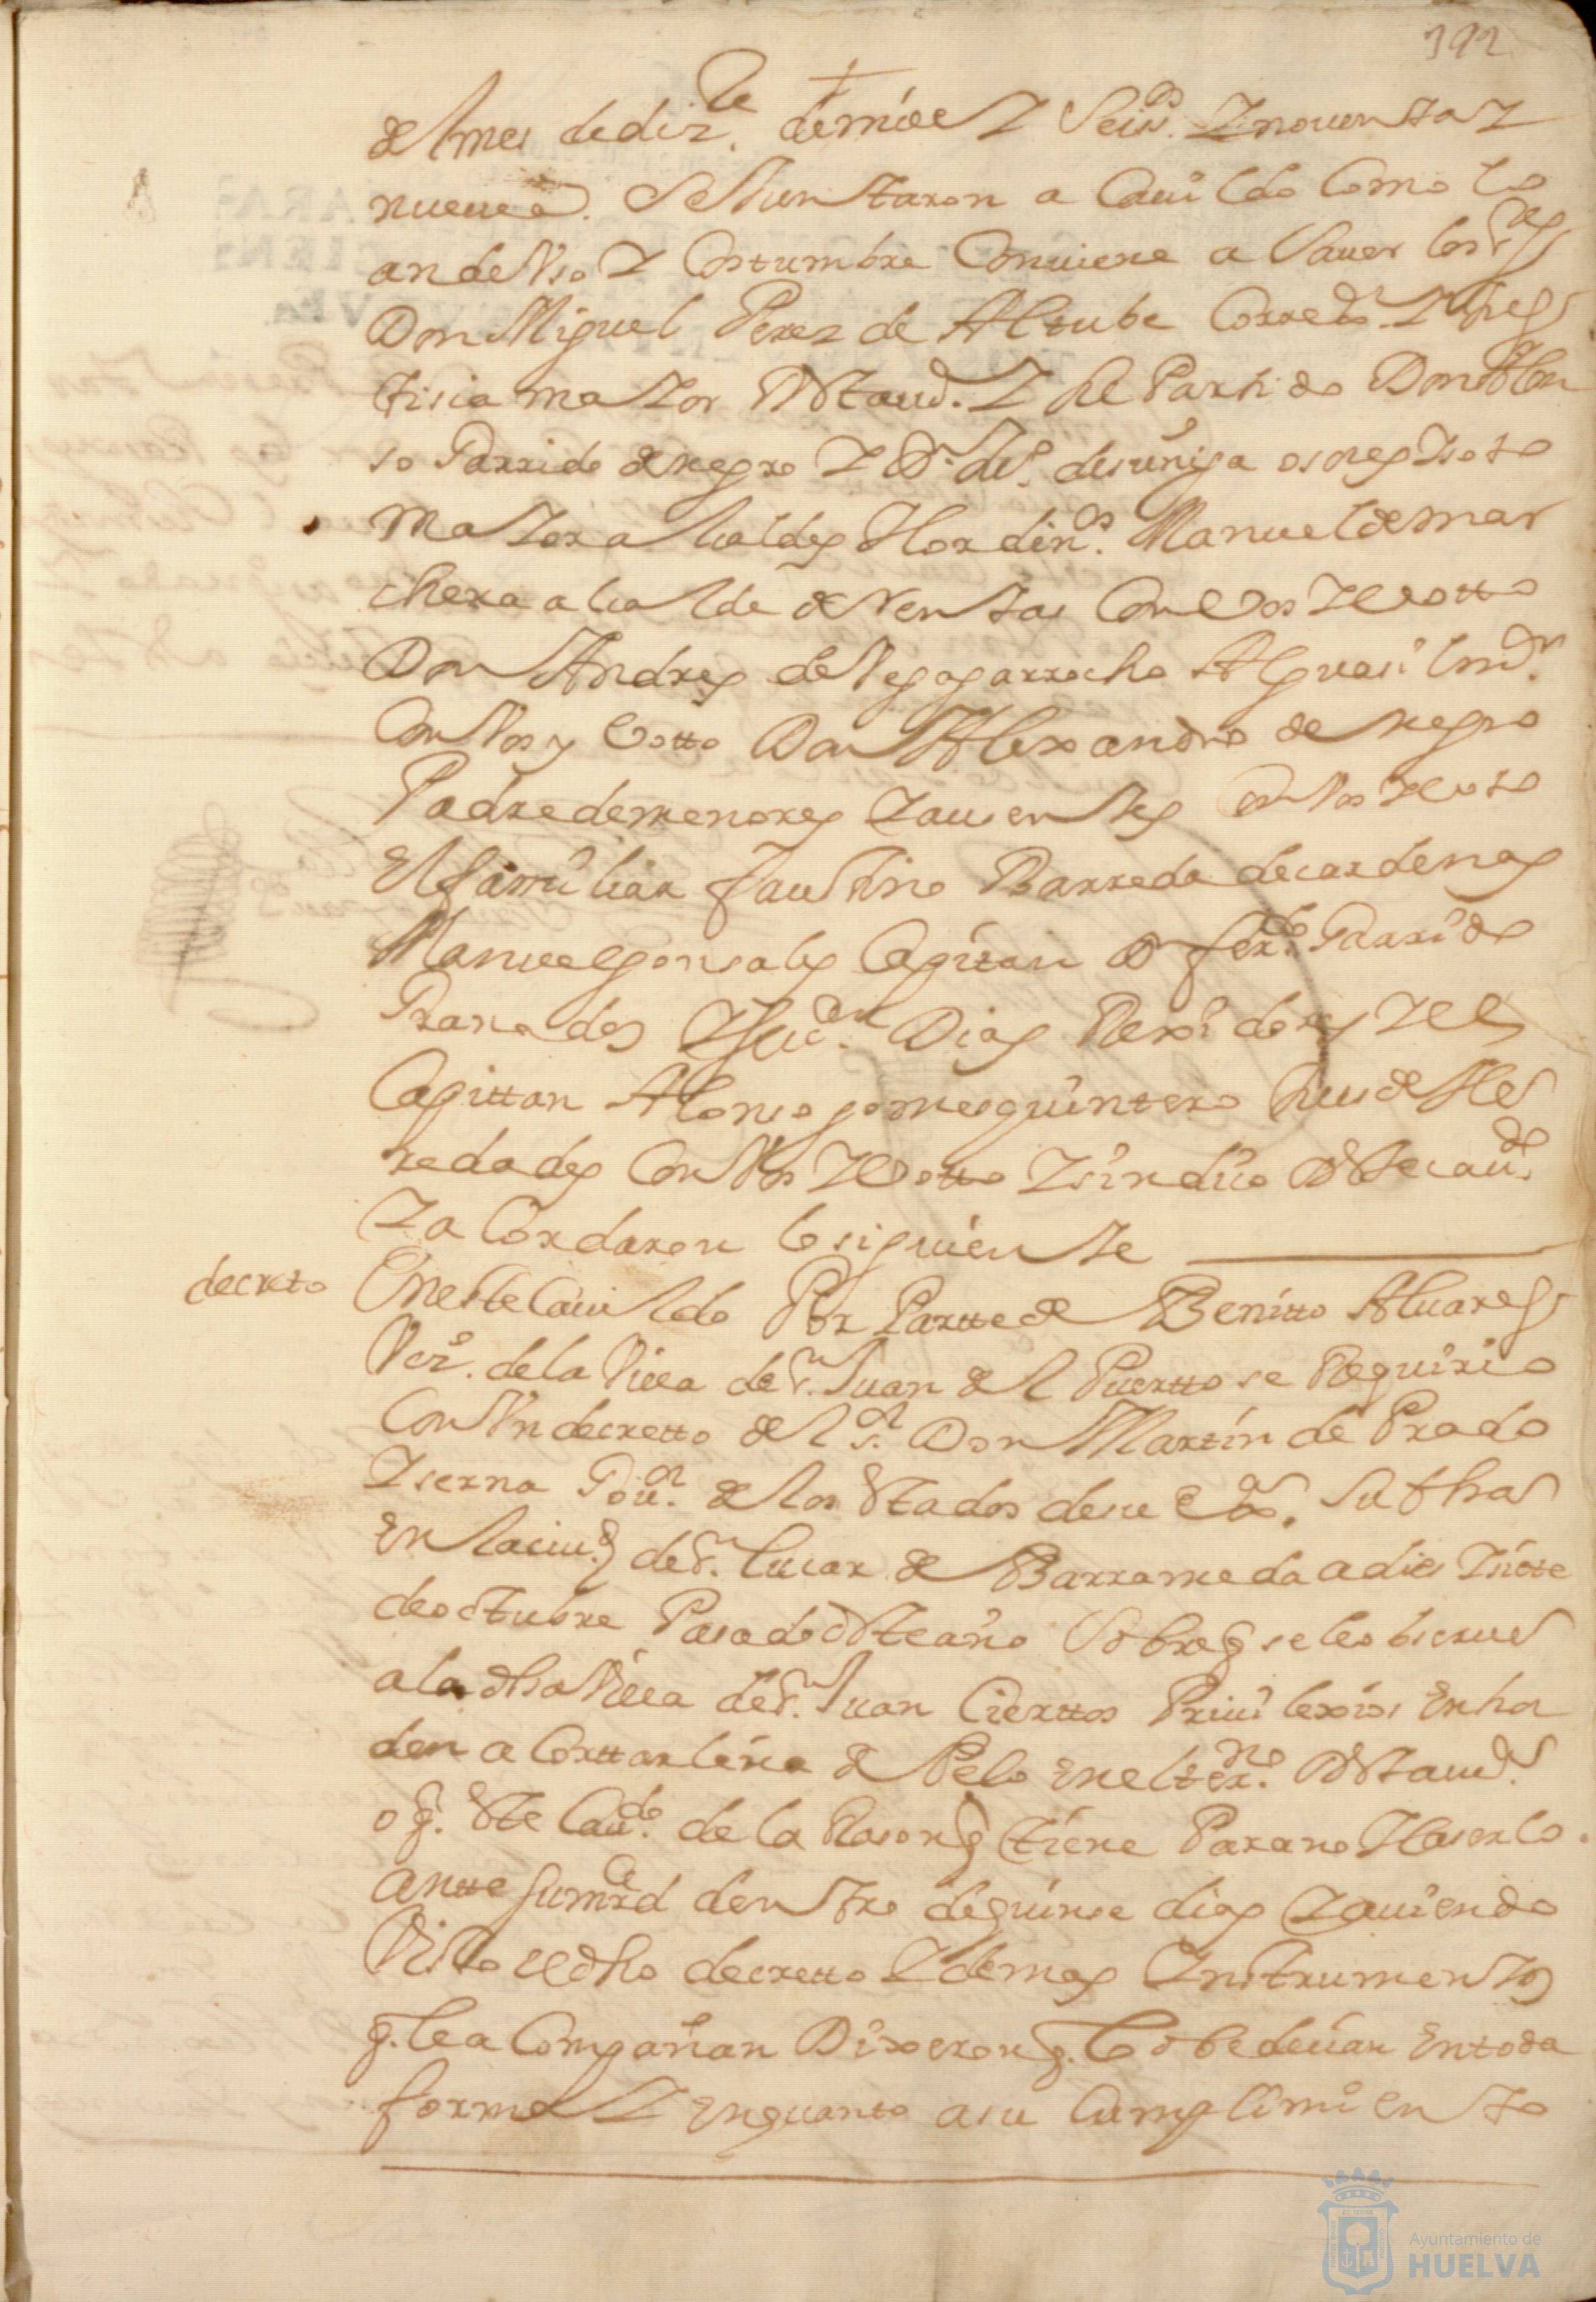 192
del mes de diz.re de mill y Seis.os y nouenta y
nueue. Se Juntaron a Cauildo Como lo
an de Vso y Costumbre Conuiene a Sauer los s.res
Don Miguel Perez de Altube Corred.or y Jus
ticia maior desta uilla y su Partido Don Alon
so Garrido de negro y D.n de suniga
maior alcaldes Hordin.os Manuel de mar
chena alcalde de Ventas Con Vos y Votto
Don Andres de Vega garrocho Alguasil m.or
Con Vos y Votto Don Alexandro de negro
Padre de menores y ausentes Con Vos y Voto
El familiar faustino Barreda de cardenas
Manuel gonsales Capitan D.n fer.do Garrido
Granados Diaz Rexidores y el
Capittan Alonso gomes quintero Jues de He
redades Con Vos y Votto y sindico deste cau.do
y a Cordaron lo siguiente
decreto
En este Cauildo Por Partte de Benitto Aluares
Vez.o de la Villa de S.n Juan del Puertto se Requirio
Con Vn decretto del s.or Don Martin de Prado
y serna Gou.or de los Estados de su Ex.a Su fha
En la ciu.d de S. Lucar de Barrameda a dies y siete
de octubre Pasado deste año Sobre q se le obserue
a la dha Villa de S.n Juan Ciertos Priuilexios En ha
den a Corttar leña de Pelo en el ter.no desta
o q. este Cau.do de la Rason q tiene Para no Haserlo
antte su m.rd dentro de quinse dias y auiendo
Visto el dho decretto y demas Instrumentos
q. le a Compañan Dixeron q. lo obedecian En toda
forma y en quanto a su Cumplimiento
Ayuntamiento de
HUELVA